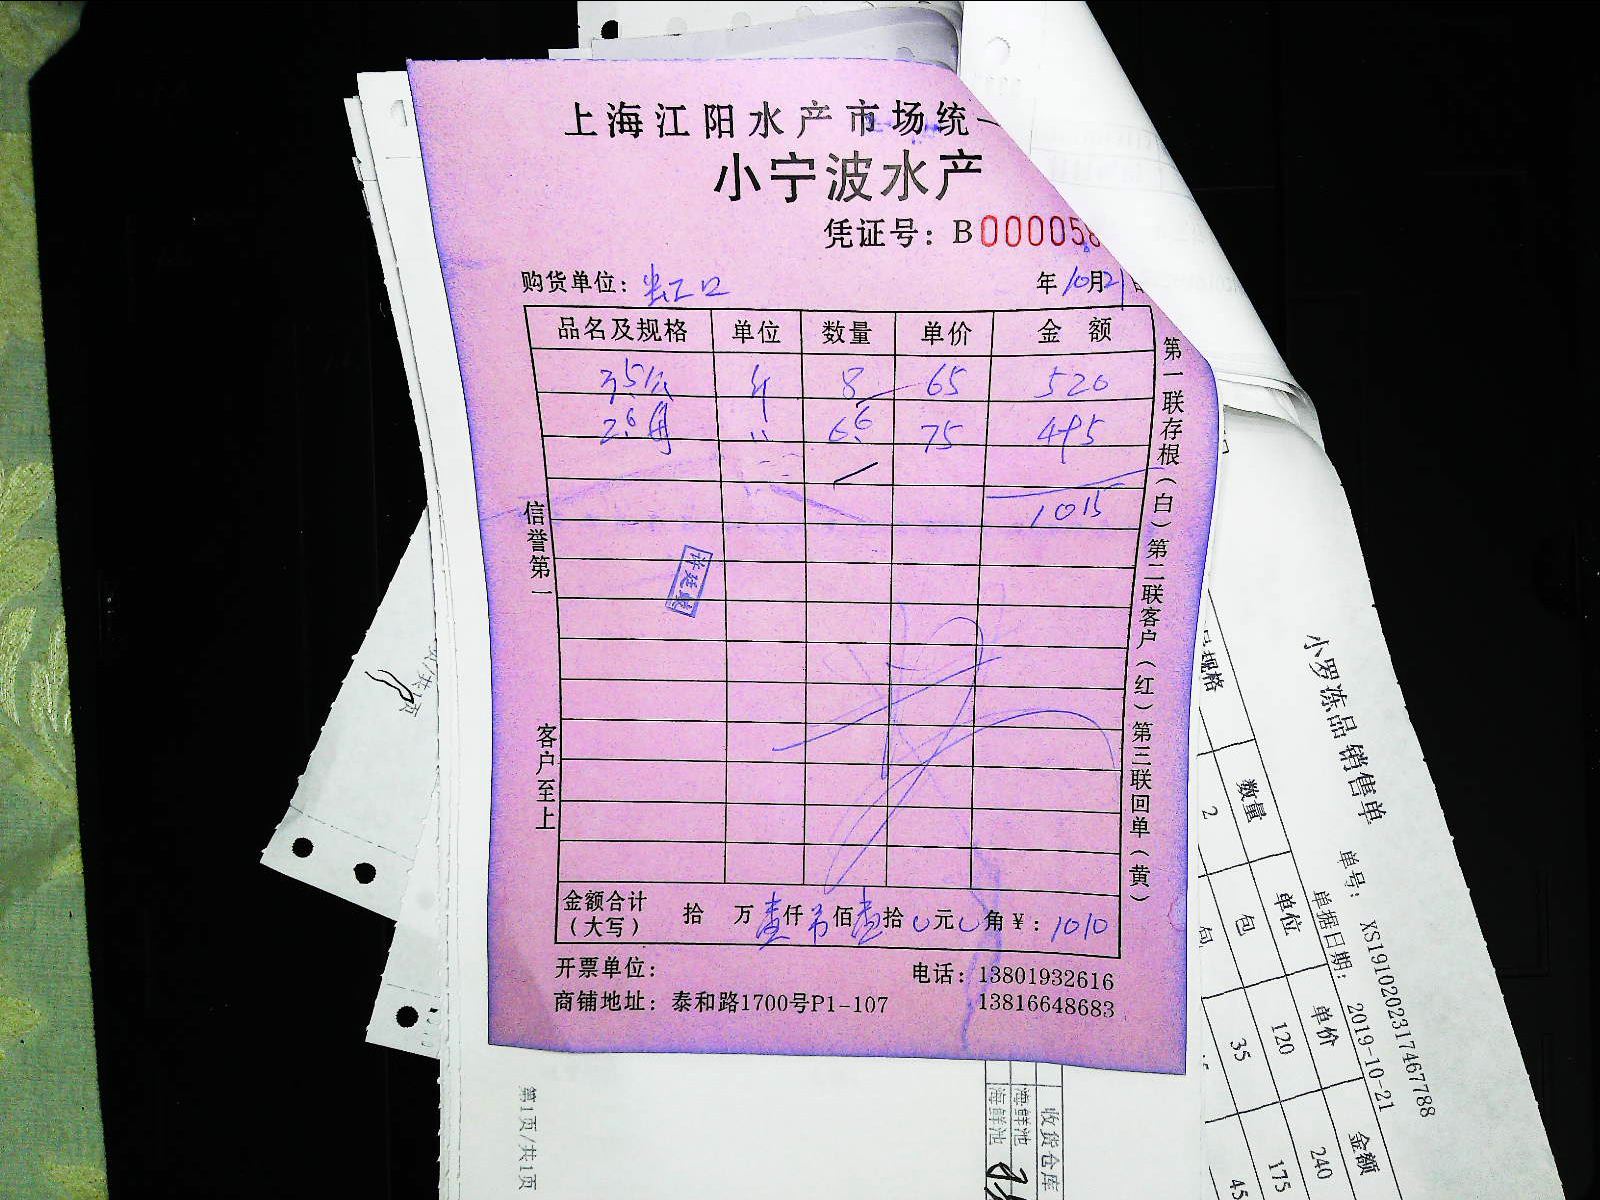 上海江阳水产市场统一
小宁波水产
凭证号：B000058
购货单位：虹口
年10月21日
品名及规格 单位 数量 单价 金额
3.5公 斤 8 65 520
2.6母 〃 6.6 75 495
1015
信誉第一
客户至上
第一联存根（白）第二联客户（红）第三联回单（黄）
金额合计（大写） 拾 万壹仟 佰壹拾0元0角￥：1010
开票单位：
电话：13801932616
商铺地址：泰和路1700号P1-107
13816648683
小罗冻品销售单
单号： XS1910202317467788
单据日期： 2019-10-21
规格 数量 单位 单价 金额
2 包 120 240
35 175
45
第1页/共1页
收货仓库
海鲜池
海鲜池